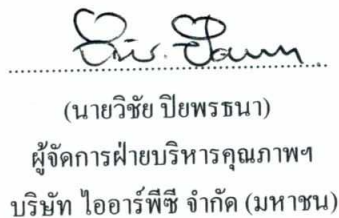 (นายวิชัย ปิยพรธนา)
ผู้จัดการฝ่ายบริหารคุณภาพฯ
บริษัท ไออาร์พีซี จำกัด (มหาชน)